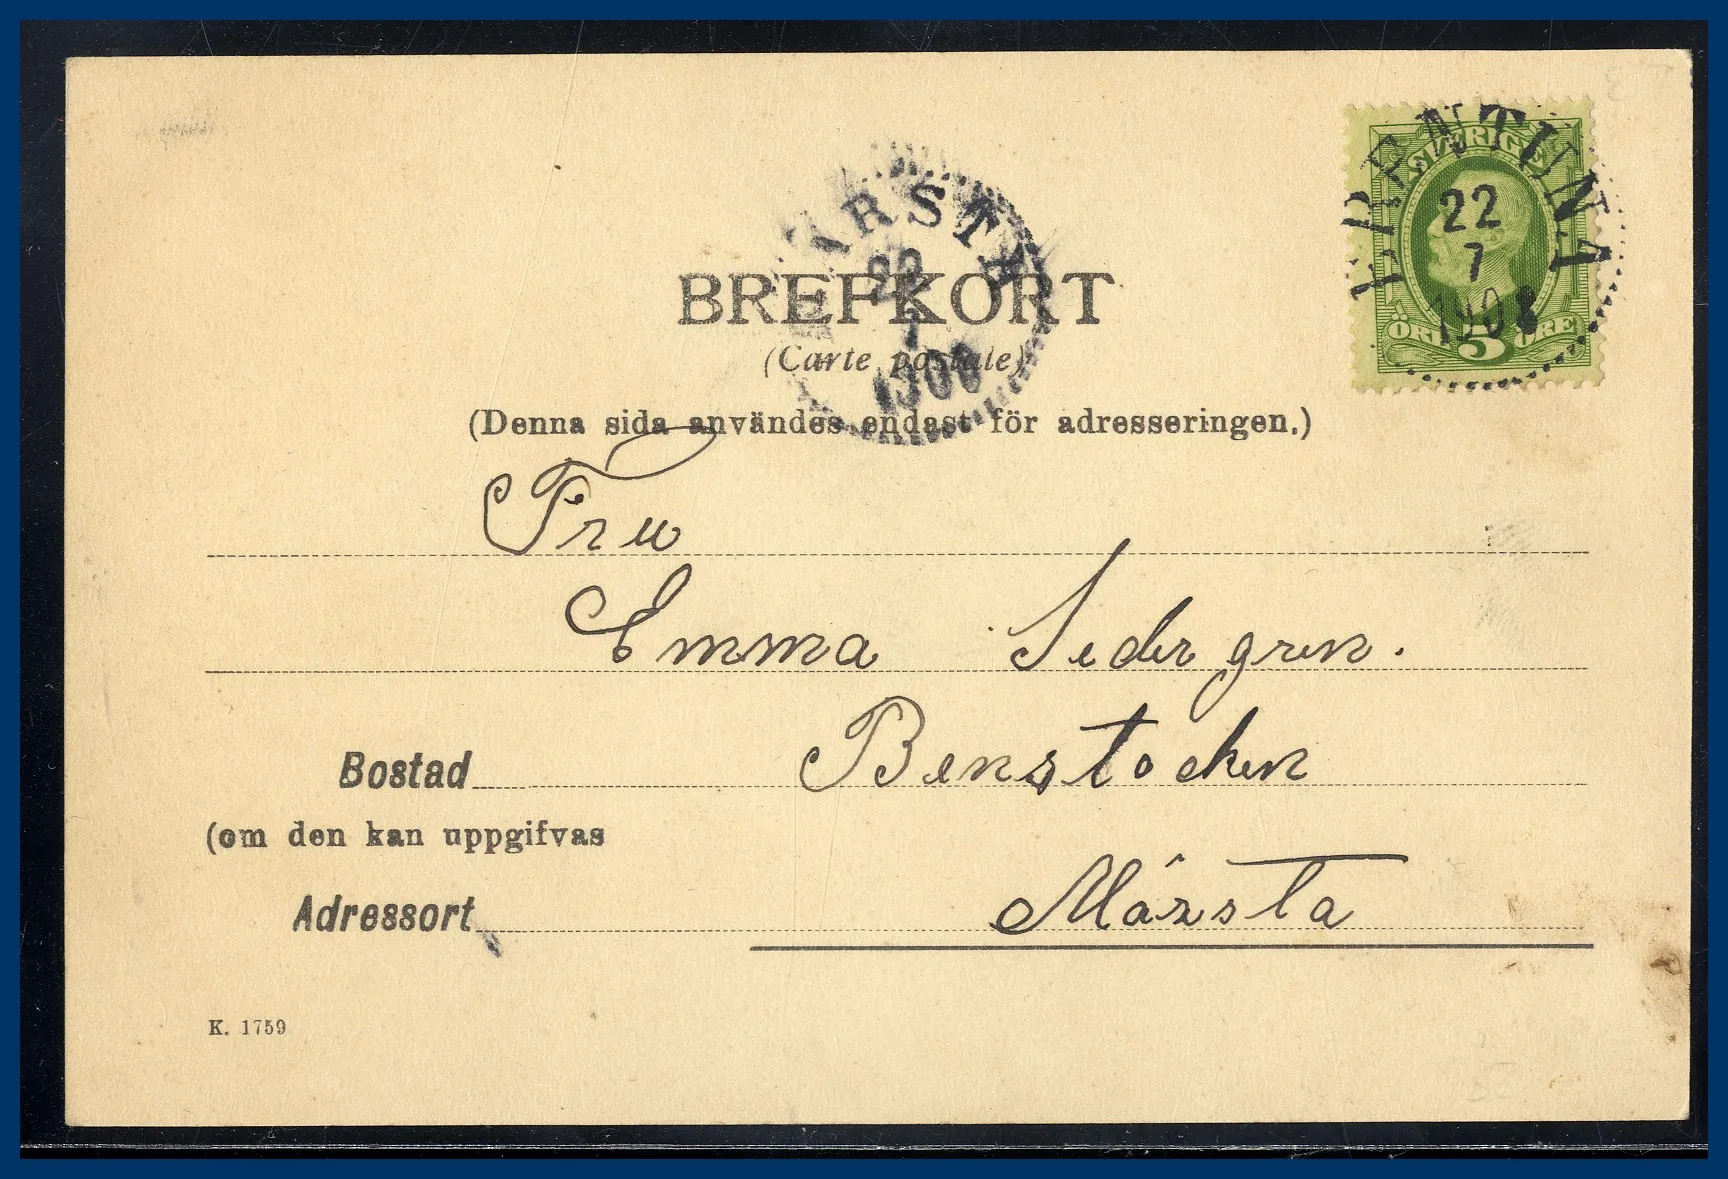 ERENTUNA
22
7
1908
SVERIGE
ÖRE 5 ÖRE
ÄRSTA
22
7
1908
BREFKORT
(Carte postale)
(Denna sida användes endast för adresseringen.)
Fru
Emma Sedergren.
Benstocken
Bostad
(om den kan uppgifvas
Märsta
Adressort
K. 1759